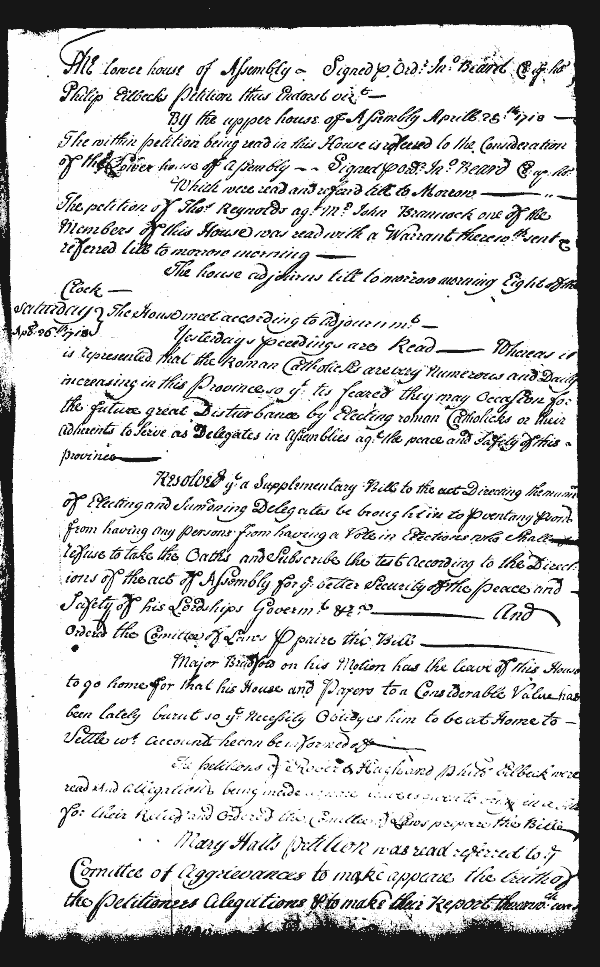 The lower house of Assembly ~ Signed p Ord.r Jn.o Beard Cl
Philip Eilbecks Petition thus Endorst viz.t —
By the upper house of Assembly Aprill 25.th 1718 —
The within petition being read in this House is referred to the Consideration
of the Lower house of Assembly — ~ Signed p ord.r Jn.o Beard Cl
Which were read and referd till to Morrow —
The petition of Tho.s Reynolds ag.t M.r John Brannock one of the
Members of this House was read with a Warrant therew.th sent &
referred till to morrow morning —
The house adjourns till to morrow morning Eight of the
Clock —
Saturday } The House met according to adjournm.t —
Apr. 26.th 1718
Yesterdays pceedings are Read — Whereas it
is represented that the Roman Catholicks are very Numerous and Daily
increasing in this Province so y.t its feared they may Occasion for
the future great Disturbance by Electing roman Catholicks or their
adherents to Serve as Delegates in Assemblies ag.t the peace and Safety of this
province —
Resolved y.t a Supplementary Bill to the act Directing the
of Electing and Sumoning Delegates be brought in to prvent any
from having any persons from having a Vote in Elections who Shall
refuse to take the Oaths and Subscribe the test according to the Direct
ions of the act of Assembly for y.e better Security of the peace and
Safety of his Lordships Governm.t &c — And
Ordered the Comittee of Laws p paire the Bill —
Major Bradford on his Motion has the leave of this House
to go home for that his House and Papers to a Considerable Value has
been lately burnt so y.t Necessity Obidges him to be at Home to —
Settle w.t account he can be informed of —
The petitions of & Hugh and Philip Eilbeck were
read and allegations being made
for their Relief and Ordered the Comittee of Laws prepare the Bills
Mary Halls petition was read referred to y.e
Comittee of Aggrievances to make appeare the truth of
the Petitioners Alegations & to make their Report thereon